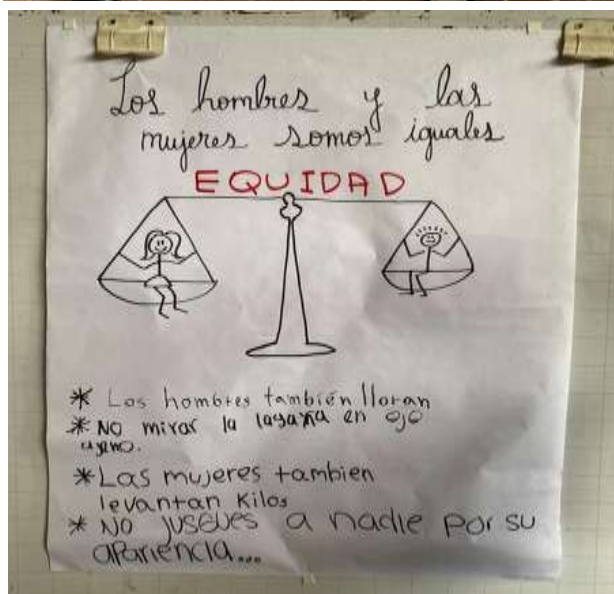 Los hombres y las
mujeres somos iguales
EQUIDAD
* Los hombres también lloran
* NO mirar la lagaña en ojo
ajeno.
* Las mujeres tambien
levantan Kilos
* NO jusgues a nadie por su
apariencia...